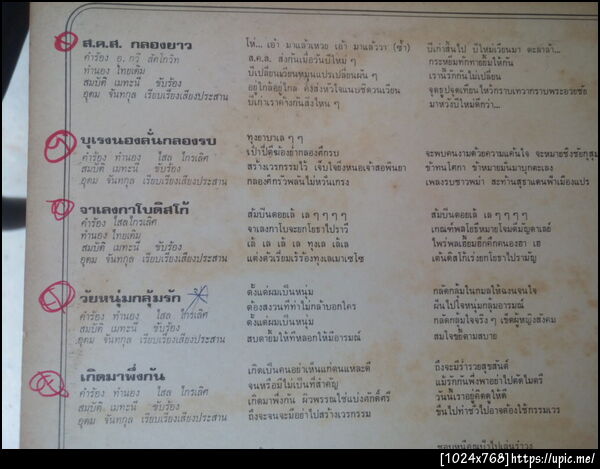 ส.ค.ส. กลองยาว
คำร้อง อ. กวี สัตโกวิท
ทำนอง ไทยเดิม
สมบัติ เมทะนี ขับร้อง
อุดม จันทกุล เรียบเรียงเสียงประสาน
โห่... เอ้า มาแล้วเหวย เอ้า มาแล้ววา (ซ้ำ)
ส.ค.ส. ส่งกันเมื่อวันปีใหม่ ๆ
ปีเปลี่ยนเวียนหมุนแปรเปลี่ยนผัน ๆ
อยู่ใกล้อยู่ไกล
ปีเก่าเราค้างกันลงไหน ๆ
ปีเก่าสิ้นไป ปีใหม่เวียนมา
กระหยิ่มทักทายยิ้มให้กัน
เรานี้รักกันไม่เปลี่ยน
จุดธูปจุดเทียน ไหว้กราบเทวาทราบพระอวยชัย
มาหวังปีใหม่ดีกว่า...
บุเรงนองลั่นกลองรบ
คำร้อง ทำนอง ไสล ไกรเลิศ
สมบัติ เมทะนี ขับร้อง
อุดม จันทกุล เรียบเรียงเสียงประสาน
ทุงยาบาเล ๆ ๆ
เป่าปี่ตีฆ้องย่ำกลองศึกรบ
สร้างเวรกรรมไว้ เจ็บใจยิ่งหนอเจ้าสอพินยา
กลองศึกรัวพลันไม่หวั่นเกรง
จะพบคนงามด้วยความแค้นใจ จะหมายชิงชัยกุสุมา
ข้าทนโศกา ข้าหมายมั่นมาบุกตะเลง
เพลงรบชาวพม่า สะท้านสุธาแดนฟ้าเมืองแปร
จาเลงกาโบดิสโก้
คำร้อง ไสลไกรเลิศ
ทำนอง ไทยเดิม
สมบัติ เมทะนี ขับร้อง
อุดม จันทกุล เรียบเรียงเสียงประสาน
สัมบีนดอยเล้ เล ๆ ๆ ๆ ๆ
จาเลงกาโบจะยกโยธาไปราวี
เล้ เล เล้ เล ทุงเล เล้เล
แต่งตัวเรียมเร้ร้องทุงเลเมาเซโซ
สัมบีนดอยเล้ เล ๆ ๆ ๆ ๆ
เกณฑ์พลโยธีหมายโจมตีมัญดาเลย์
ไพร่พลเอ๋ยอึกทึกคนองฮา เฮ
เต้นดิสโก้เร่งยกโยธาไปรามัญ
วัยหนุ่มกลุ้มรัก
คำร้อง ทำนอง ไสล ไกรเลิศ
สมบัติ เมทะนี ขับร้อง
อุดม จันทกุล เรียบเรียงเสียงประสาน
ตั้งแต่ผมเป็นหนุ่ม
ต้องสงวนทีท่าไม่กล้าบอกใคร
ตั้งแต่ผมเป็นหนุ่ม
สบตายิ้มให้ทีหลอกให้มีอารมณ์
กลัดกลุ้มในกมลให้ฉงนจนใจ
ฝืนไปใจหนุ่มกลุ้มอารมณ์
กลัดกลุ้มใจจริง ๆ เชิดผู้หญิงสังคม
สมใจขยี้ตามสบาย
เกิดมาพึ่งกัน
คำร้อง ทำนอง ไสล ไกรเลิศ
สมบัติ เมทะนี ขับร้อง
อุดม จันทกุล เรียบเรียงเสียงประสาน
เกิดเป็นคนอย่าเห็นแก่ตนแหละดี
จนหรือมีไม่เป็นที่สำคัญ
เกิดมาพึ่งกัน ผิวพรรณใช่แบ่งศักดิ์ศรี
ถึงจะจนจะมีอย่าไปสร้างเวรกรรม
ถึงจะมีร่ำรวยสุขสันต์
แม้รักกันพึ่งพาอย่าไปตัดไมตรี
วันนี้เราอยู่คิดดูให้ดี
ขึ้นไปทำชั่วไปอาจต้องใช้กรรมเวร
[1024x768]https://upic.me/